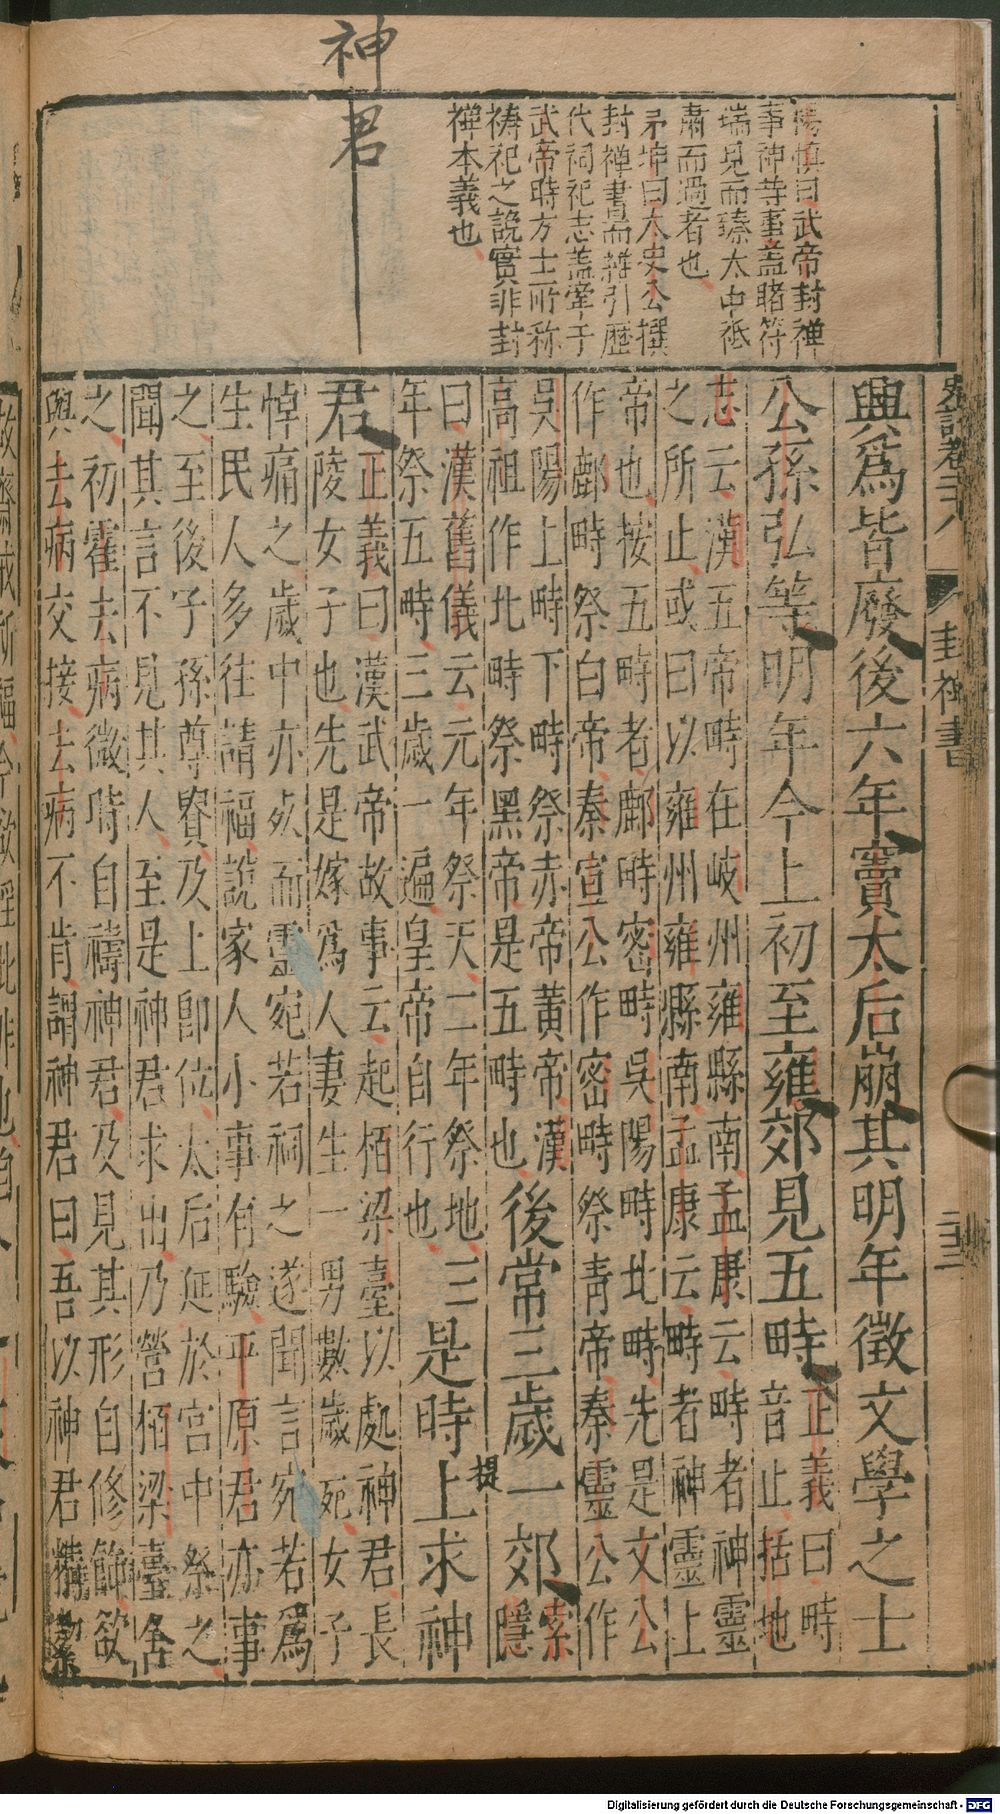 神君
楊慎曰武帝封禅
事神等事盖睹符
瑞見而臻太中祗
肅而過者也
茅坤曰太史公撰
封禅書畧雜引歷
代祠祀志盖牽于
武帝時方士所称
祷祀之說實非封
禅本義也
史記卷二十八
封禅書
二十二
興爲皆廢後六年竇太后崩其明年徵文學之士
公孫弘等明年今上初至雍郊見五畤
正義曰畤
音止括地
志云漢五帝畤在岐州雍縣南孟康云畤者神靈
之所止或曰以雍州雍縣南孟康云畤者神靈上
帝也按五畤者鄜畤密畤吳陽畤北畤先是文公
作鄜畤祭白帝秦宣公作密畤祭青帝秦靈公作
吳陽上畤下畤祭赤帝黄帝漢
高祖作北畤祭黑帝是五畤也
後常三歲一郊
索
隱
曰漢舊儀云元年祭天二年祭地三
年祭五畤三歲一遍皇帝自行也
是時上求神
提
君
正義曰漢武帝故事云起栢梁臺以處神君長
陵女子也先是嫁爲人妻生一男數歲死女子
悼痛之歲中亦死而靈宛若祠之遂聞言宛若爲
生民人多往請福說家人小事有驗平原君亦事
之至後子孫尊貴及上即位太后延於宮中祭之
聞其言不見其人至是神君求出乃營栢梁臺舍
之初霍去病微時自禱神君及見其形自修飾欲
與去病交接去病不肯謂神君曰吾以神君精㓗
故齋戒所福今欲淫此非也自
Digitalisierung gefördert durch die Deutsche Forschungsgemeinschaft - DFG